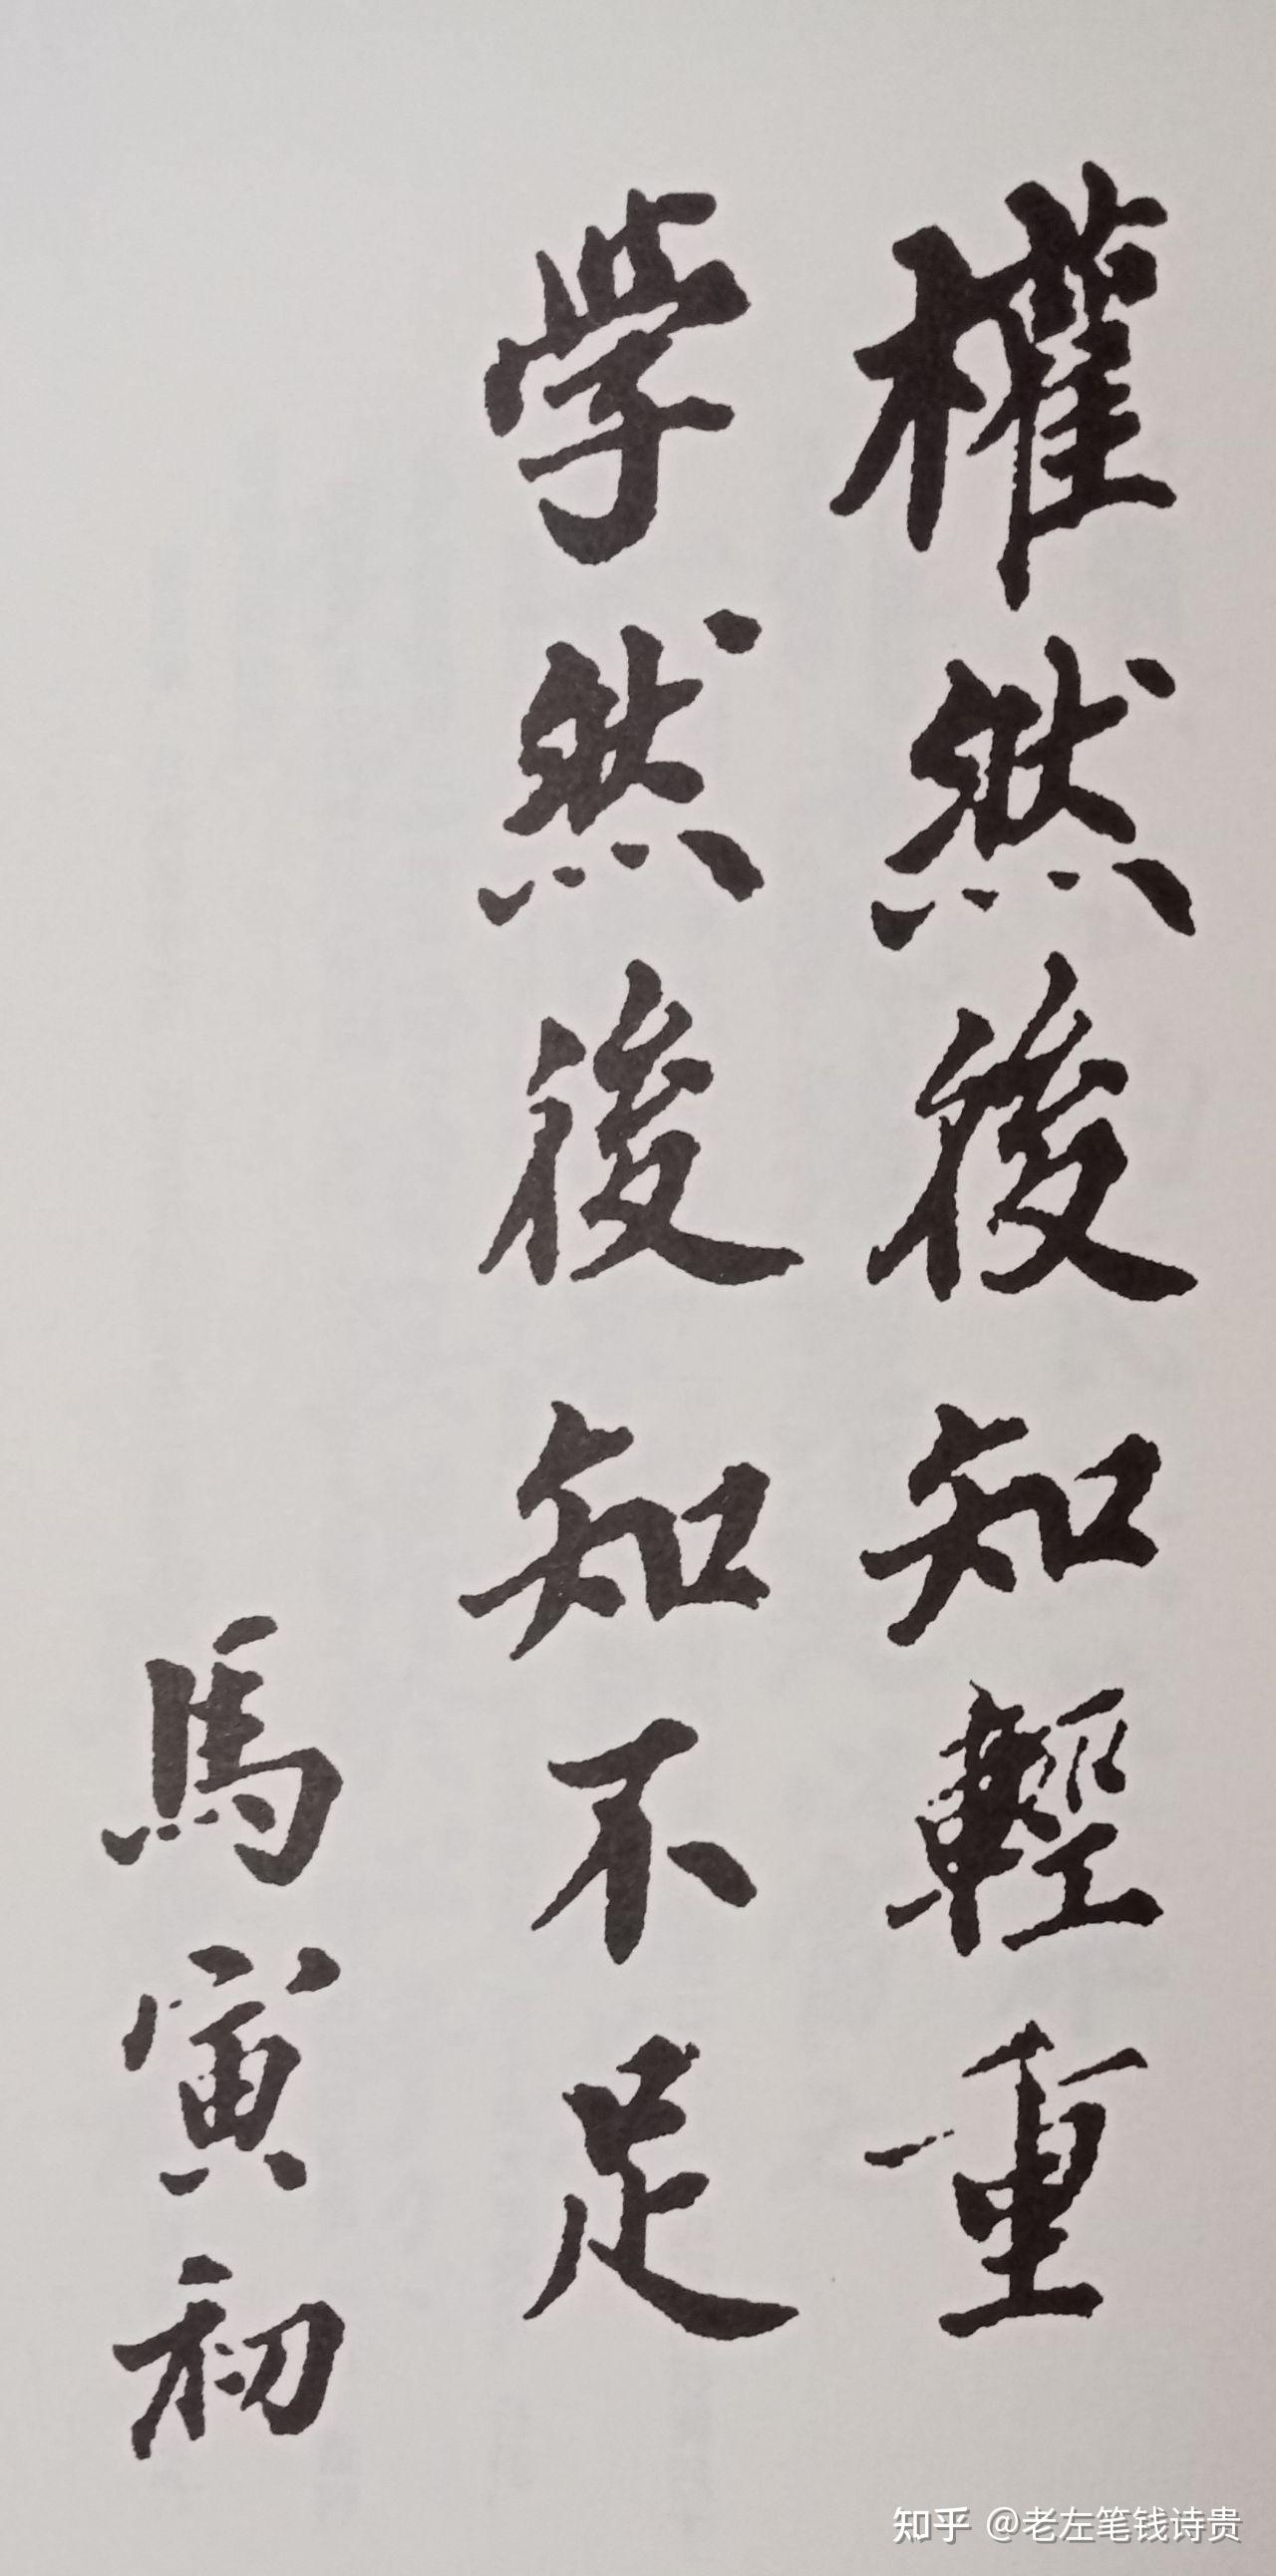 權然後知輕重
学然後知不足
馬寅初
知乎 @老左笔钱诗贵